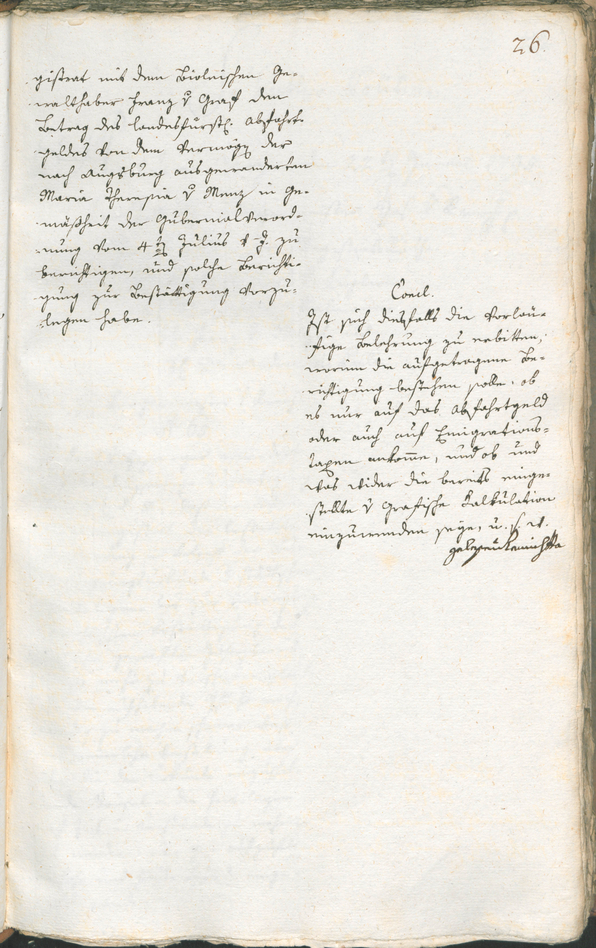 26.
gistrat mit dem Biolnischen Ge-
walthaber Franz v Grass dem
Betrag des landesfürstl. Abfahrt-
geldes von dem Vermög der
nach Augsburg ausgewanderten
Maria Theresia v Menz in Ge-
mäßheit der Gubernialverord-
nung vom 4 Julius v. J. zu
berichtigen, und solche Berichti-
gung zur Bestättigung vorzu-
legen habe.
Concl.
Ist sich diesfalls die vorläu-
fige Belehrung zu erbitten,
worinn die aufgetragene Be-
richtigung bestehen solle, ob
es nur auf das Abfahrtgeld
oder auch auf Emigrations-
taxen ankomme, und ob und
was wider die bereits einge-
stellte v Grasische Kalkulation
einzuwenden seye, u. s. w.